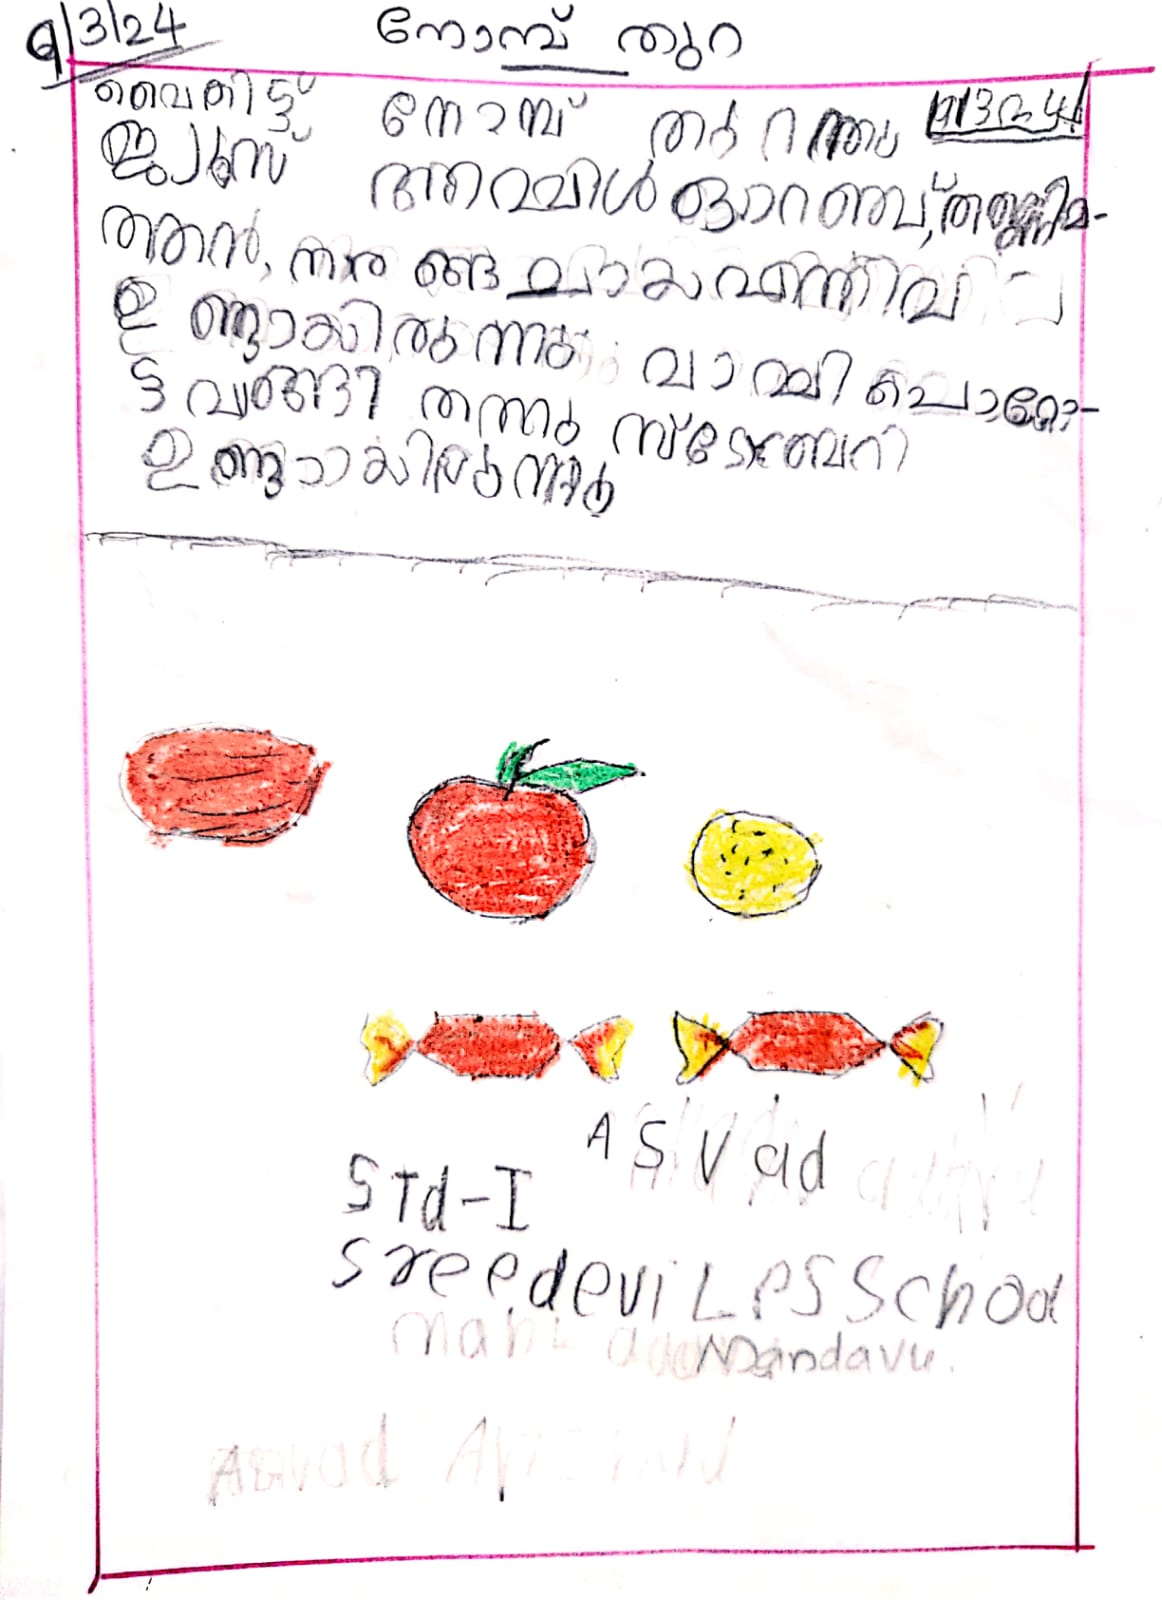 9/3/24
നോമ്പ് തുറ
വൈകിട്ട് നോമ്പ് തുറന്നു 9/3/24
ജ്യൂസ് അവിൽ ഓറഞ്ച്, തണ്ണിമ-
ത്തൻ, നാരങ്ങ
ഉണ്ടാക്കിരുന്നു വാപ്പി പൊറോ-
ട്ട വാങ്ങി തന്നു സ്ട്രോബെറി
ഉണ്ടാക്കിരുന്നു
ASVad
STd-I
Sreedevi LPS School
Mandavu.